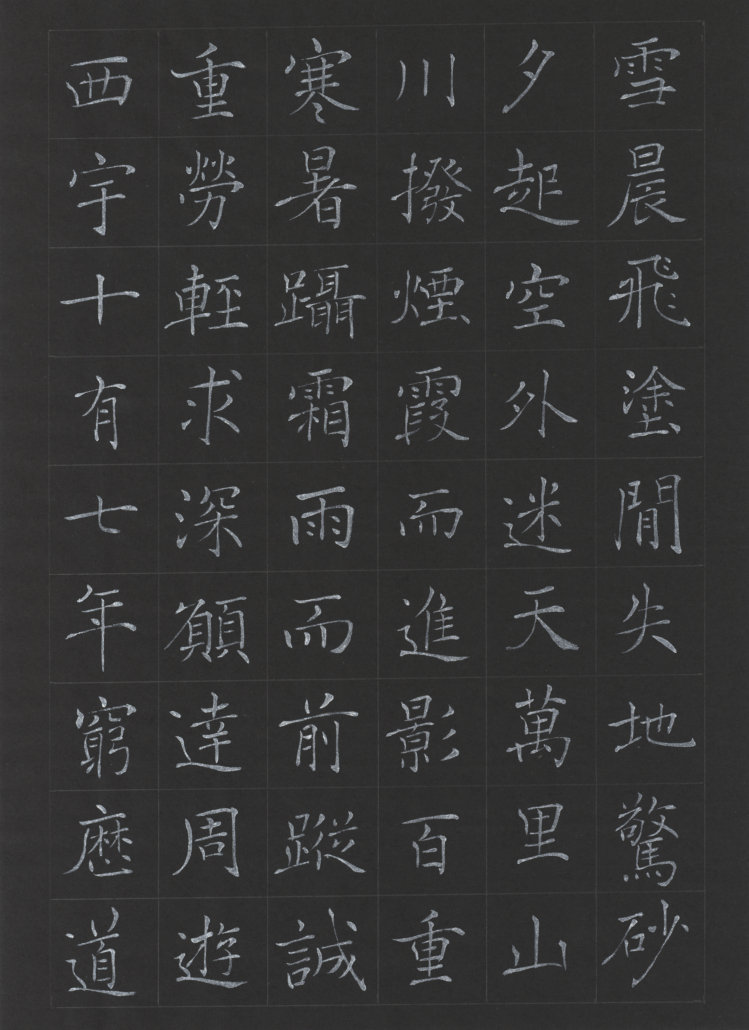 雪晨飛塗閒失地驚砂
夕起空外迷天萬里山
川撥煙霞而進影百重
寒暑躡霜雨而前蹤誠
重勞輕求深願達周遊
西宇十有七年窮歷道